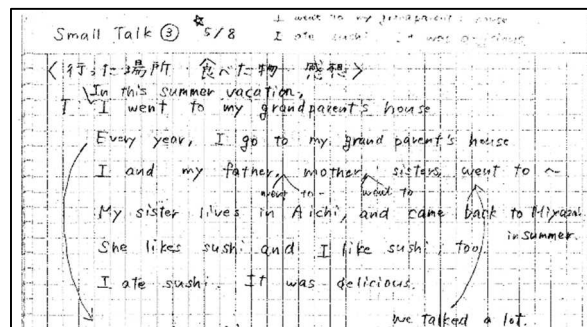 Small Talk ③ ☆5/8
I went to my grandparent's house
I ate sushi. It was delicious.
〈行った場所・食べた物・感想〉
In this summer vacation,
T: I went to my grandparent's house
Every year, I go to my grand parent's house
I and my father, mother, sisters, went to ~
went to ~ went to
My sister lives in Aichi, and came back to Miyazaki
in summer.
She likes sushi and I like sushi, too
I ate sushi. It was delicious.
we talked a lot.